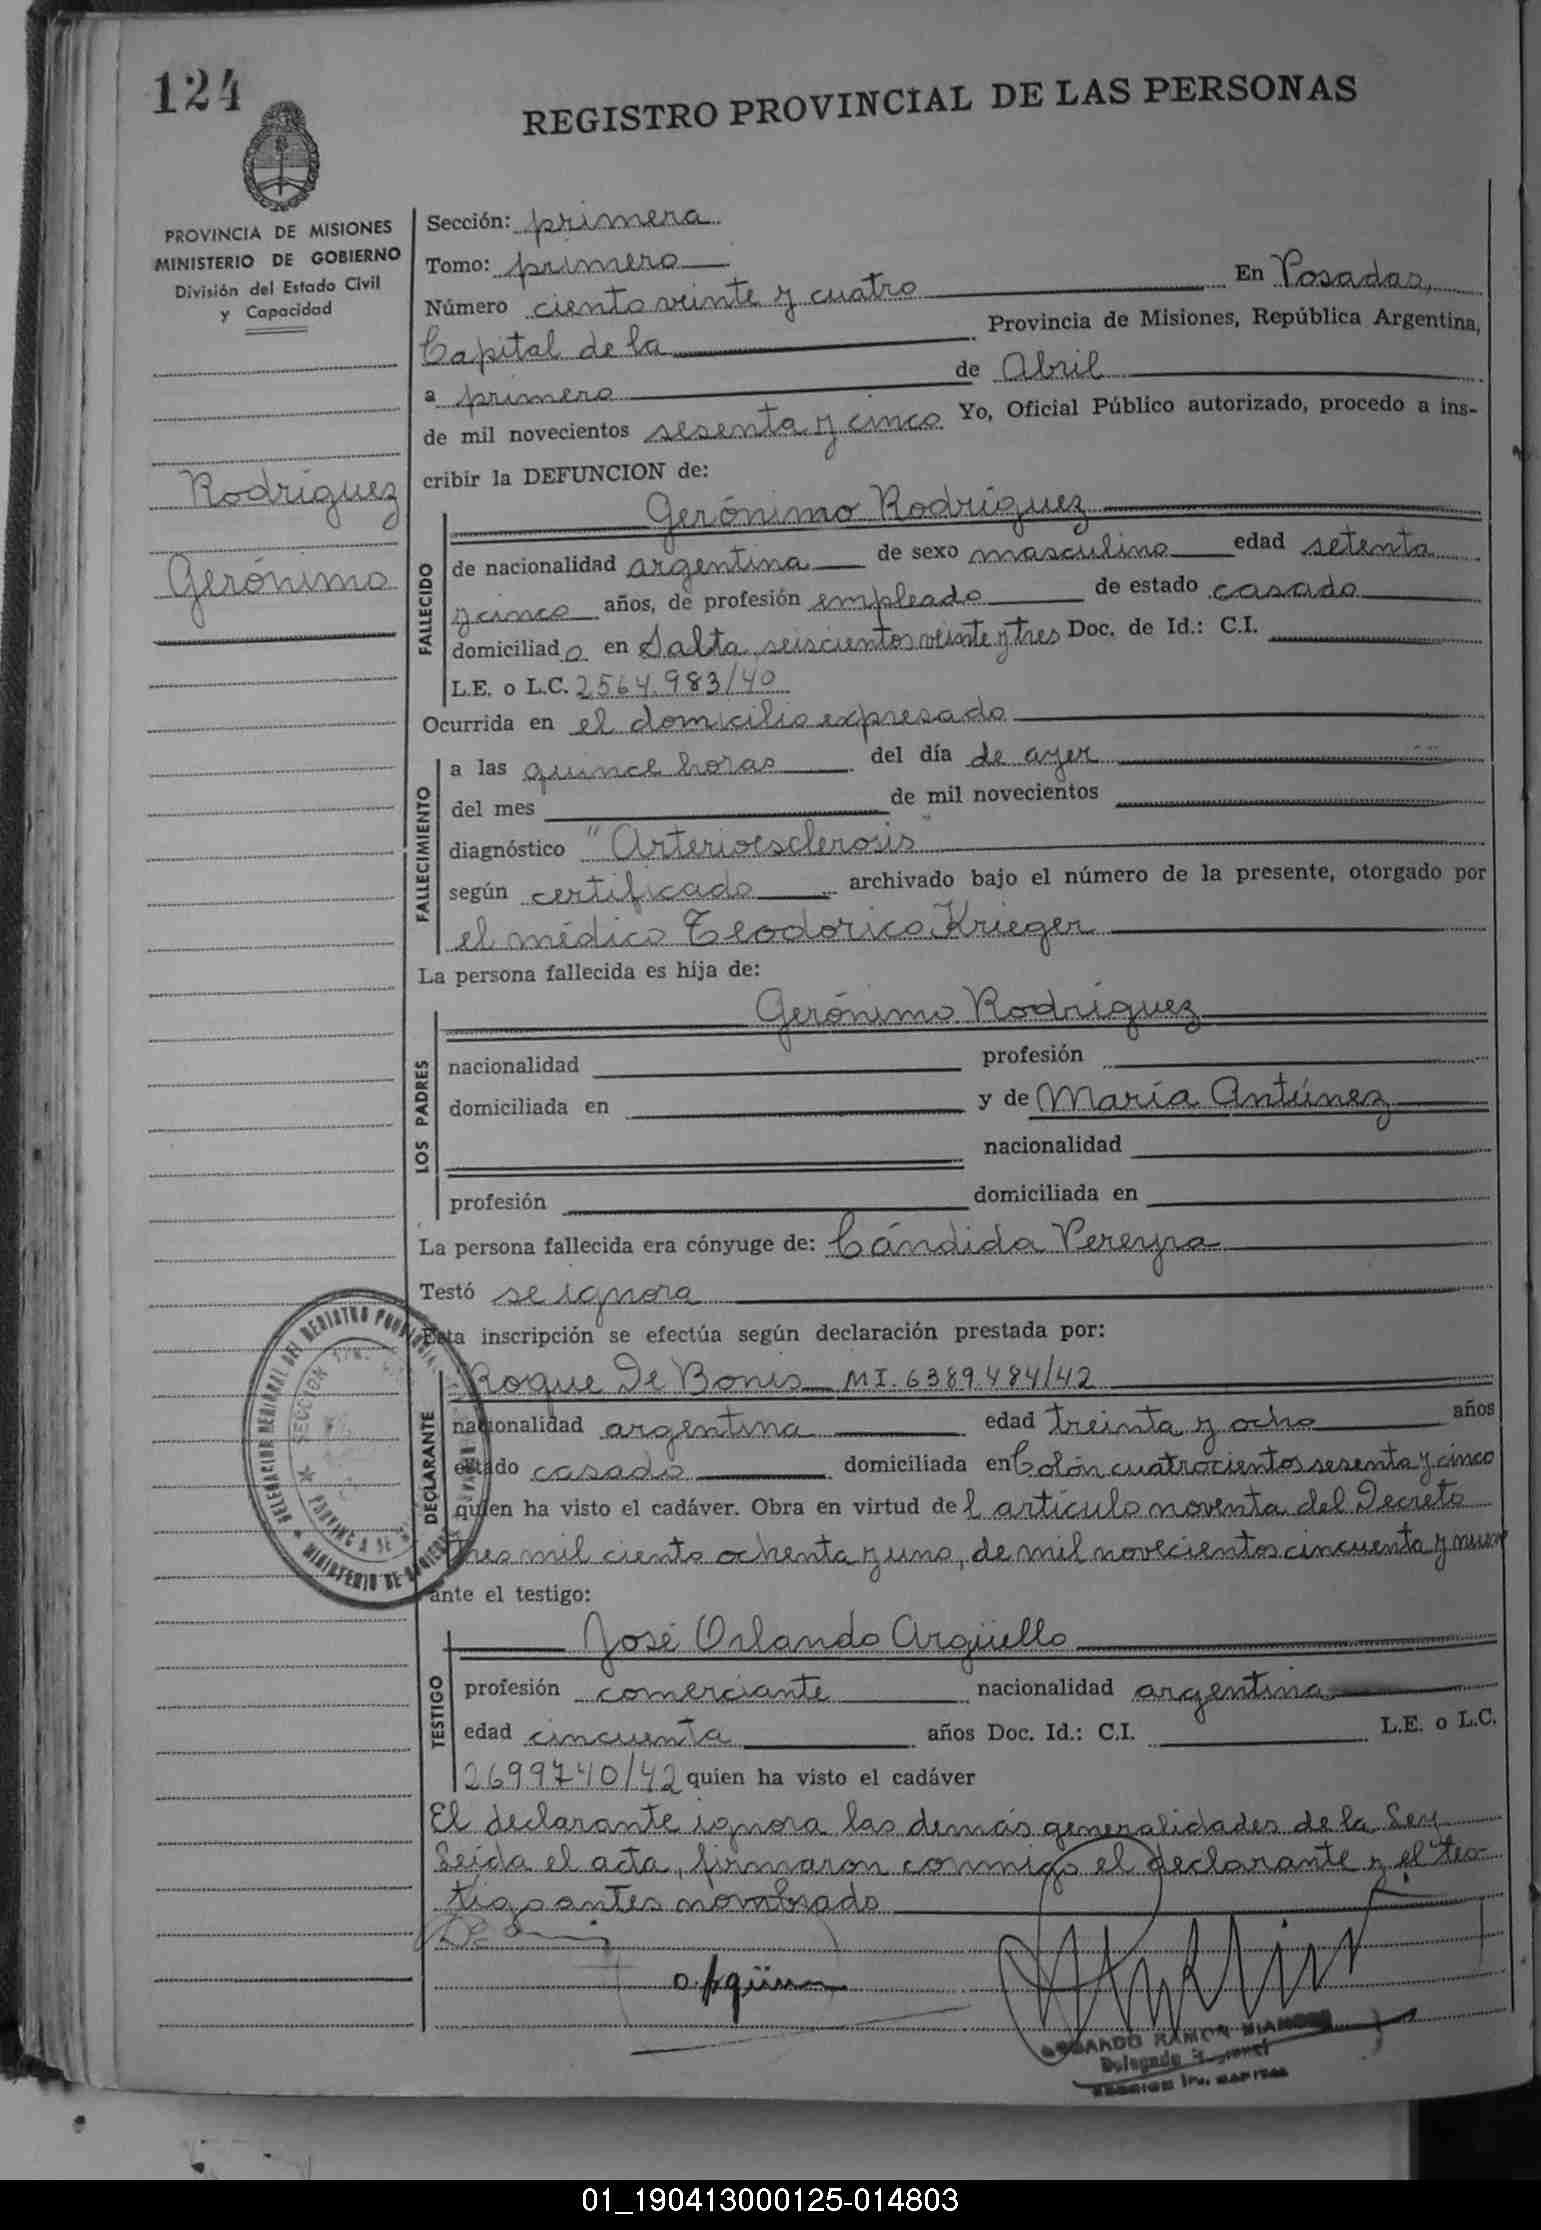 124
REGISTRO PROVINCIAL DE LAS PERSONAS
PROVINCIA DE MISIONES
MINISTERIO DE GOBIERNO
División del Estado Civil
y Capacidad
Rodríguez
Gerónimo
Sección: primera
Tomo: primero
Número ciento veinte y cuatro En Posadas,
Capital de la Provincia de Misiones, República Argentina,
a primero de Abril
de mil novecientos sesenta y cinco Yo, Oficial Público autorizado, procedo a ins-
cribir la DEFUNCION de:
Gerónimo Rodríguez
FALLECIDO
de nacionalidad argentina de sexo masculino edad setenta
y cinco años, de profesión empleado de estado casado
domiciliado en Salta seiscientos veinte y tres Doc. de Id.: C.I.
L.E. o L.C. 2564.983/40
Ocurrida en el domicilio expresado
FALLECIMIENTO
a las quince horas del día de ayer
del mes de mil novecientos
diagnóstico "Arterioesclerosis"
según certificado archivado bajo el número de la presente, otorgado por
el médico Teodorico Krieger
La persona fallecida es hija de:
LOS PADRES
Gerónimo Rodríguez
nacionalidad profesión
domiciliada en y de María Antúnez
nacionalidad
profesión domiciliada en
La persona fallecida era cónyuge de: Cándida Pereyra
Testó se ignora
Esta inscripción se efectúa según declaración prestada por:
DECLARANTE
Roque De Bonis MI. 6389.484/42
nacionalidad argentina edad treinta y ocho años
estado casado domiciliada en Colón cuatrocientos sesenta y cinco
quien ha visto el cadáver. Obra en virtud del artículo noventa del Decreto
tres mil ciento ochenta y uno, de mil novecientos cincuenta y nueve
ante el testigo:
TESTIGO
José Orlando Argüello
profesión comerciante nacionalidad argentina
edad cincuenta años Doc. Id.: C.I. L.E. o L.C.
2699740/42 quien ha visto el cadáver
El declarante ignora las demás generalidades de la Ley
Leída el acta, firmaron conmigo el declarante y el tes-
tigo antes nombrado
DELEGACION REGIONAL DEL REGISTRO
SECCION
MINISTERIO DE GOBIERNO
RAMON
Delegado
SECCION 1ra. CAPITAL
01_190413000125-014803